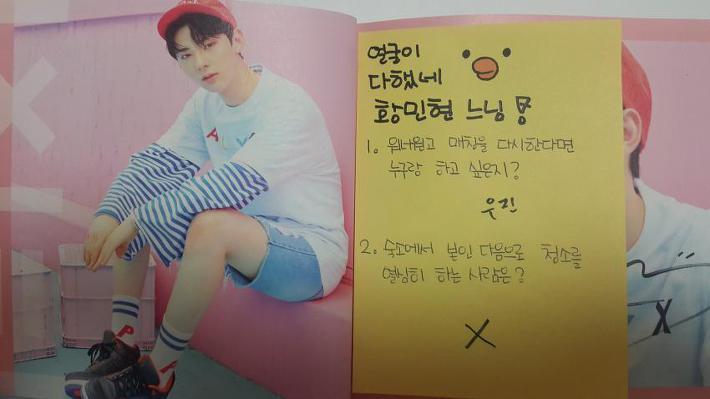 얼굴이
다했네
황민현 느님
1. 워너원고 매칭을 다시한다면
누구랑 하고 싶은지?
우진
2. 숙소에서 본인 다음으로 청소를
열심히 하는 사람은?
X